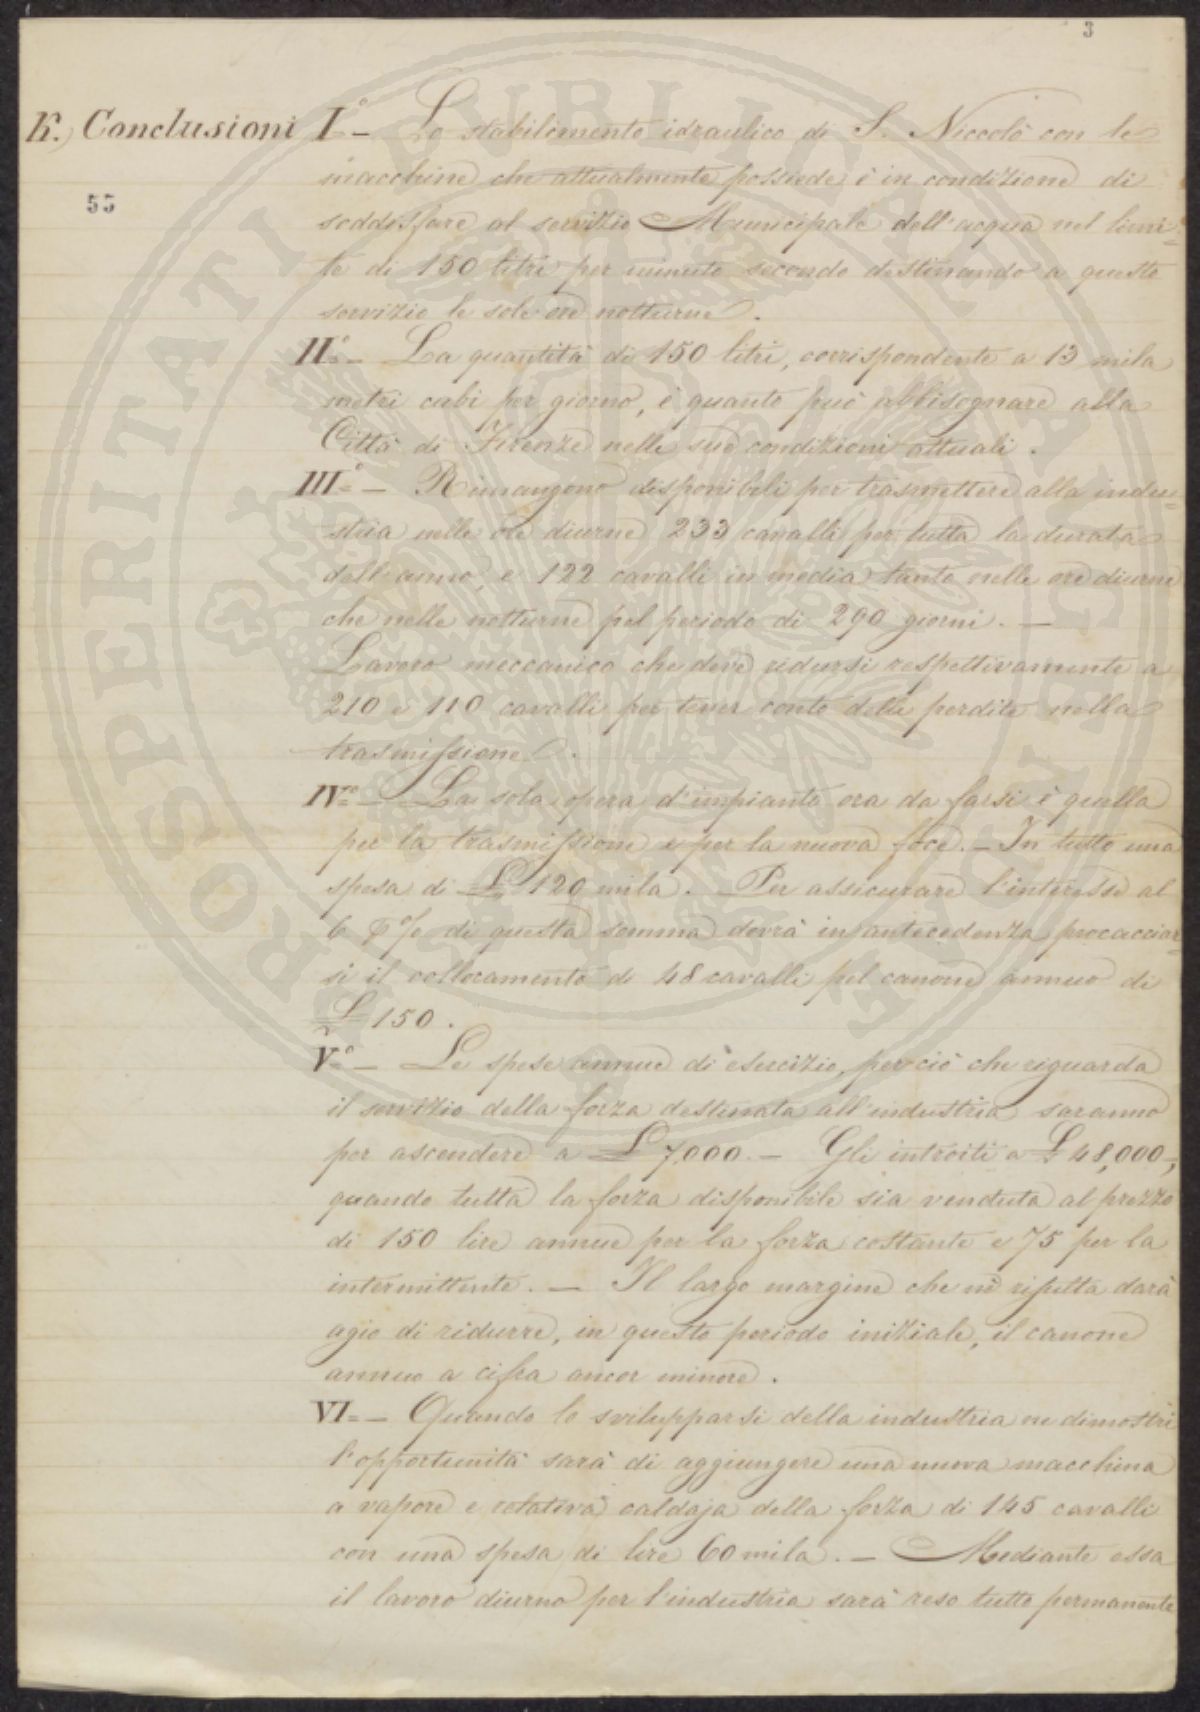 3
K.) Conclusioni I.° — Lo stabilimento idraulico di S. Niccolò con le
macchine che attualmente possiede è in condizione di
55
soddisfare al servizio Municipale dell'acqua nel limi=
te di 150 litri per minuto secondo destinando a questo
servizio le sole ore notturne.
II.° — La quantità di 150 litri, corrispondente a 13 mila
metri cubi per giorno, è quanto può abbisognare alla
Città di Firenze nelle sue condizioni attuali.
III.° — Rimangono disponibili per trasmettere alla indu=
stria nelle ore diurne 233 cavalli per tutta la durata
dell'anno, e 122 cavalli in media tanto nelle ore diurne
che nelle notturne pel periodo di 290 giorni. —
Lavoro meccanico che deve ridursi respettivamente a
210 e 110 cavalli per tener conto delle perdite nella
trasmissione.
IV.° — La sola opera d'impianto ora da farsi è quella
per la trasmissione e per la nuova foce. — In tutto una
spesa di £ 120 mila. Per assicurare l'interesse al
6 p% di questa somma dovrà in antecedenza procacciar=
si il collocamento di 48 cavalli pel canone annuo di
£ 150.
V.° — Le spese annue di esercizio, per ciò che riguarda
il servizio della forza destinata all'industria saranno
per ascendere a £ 7,000. — Gli introiti a £ 48,000 —,
quando tutta la forza disponibile sia venduta al prezzo
di 150 lire annue per la forza costante e 75 per la
intermittente. — Il largo margine che ne risulta darà
agio di ridurre, in questo periodo iniziale, il canone
annuo a cifra ancor minore.
VI.= — Quando lo svilupparsi della industria ne dimostri
l'opportunità sarà di aggiungere una nuova macchina
a vapore e relativa caldaja della forza di 145 cavalli
con una spesa di lire 60 mila. — Mediante essa
il lavoro diurno per l'industria sarà reso tutto permanente
PROSPERITATI PUBLICAE AUGENDAE